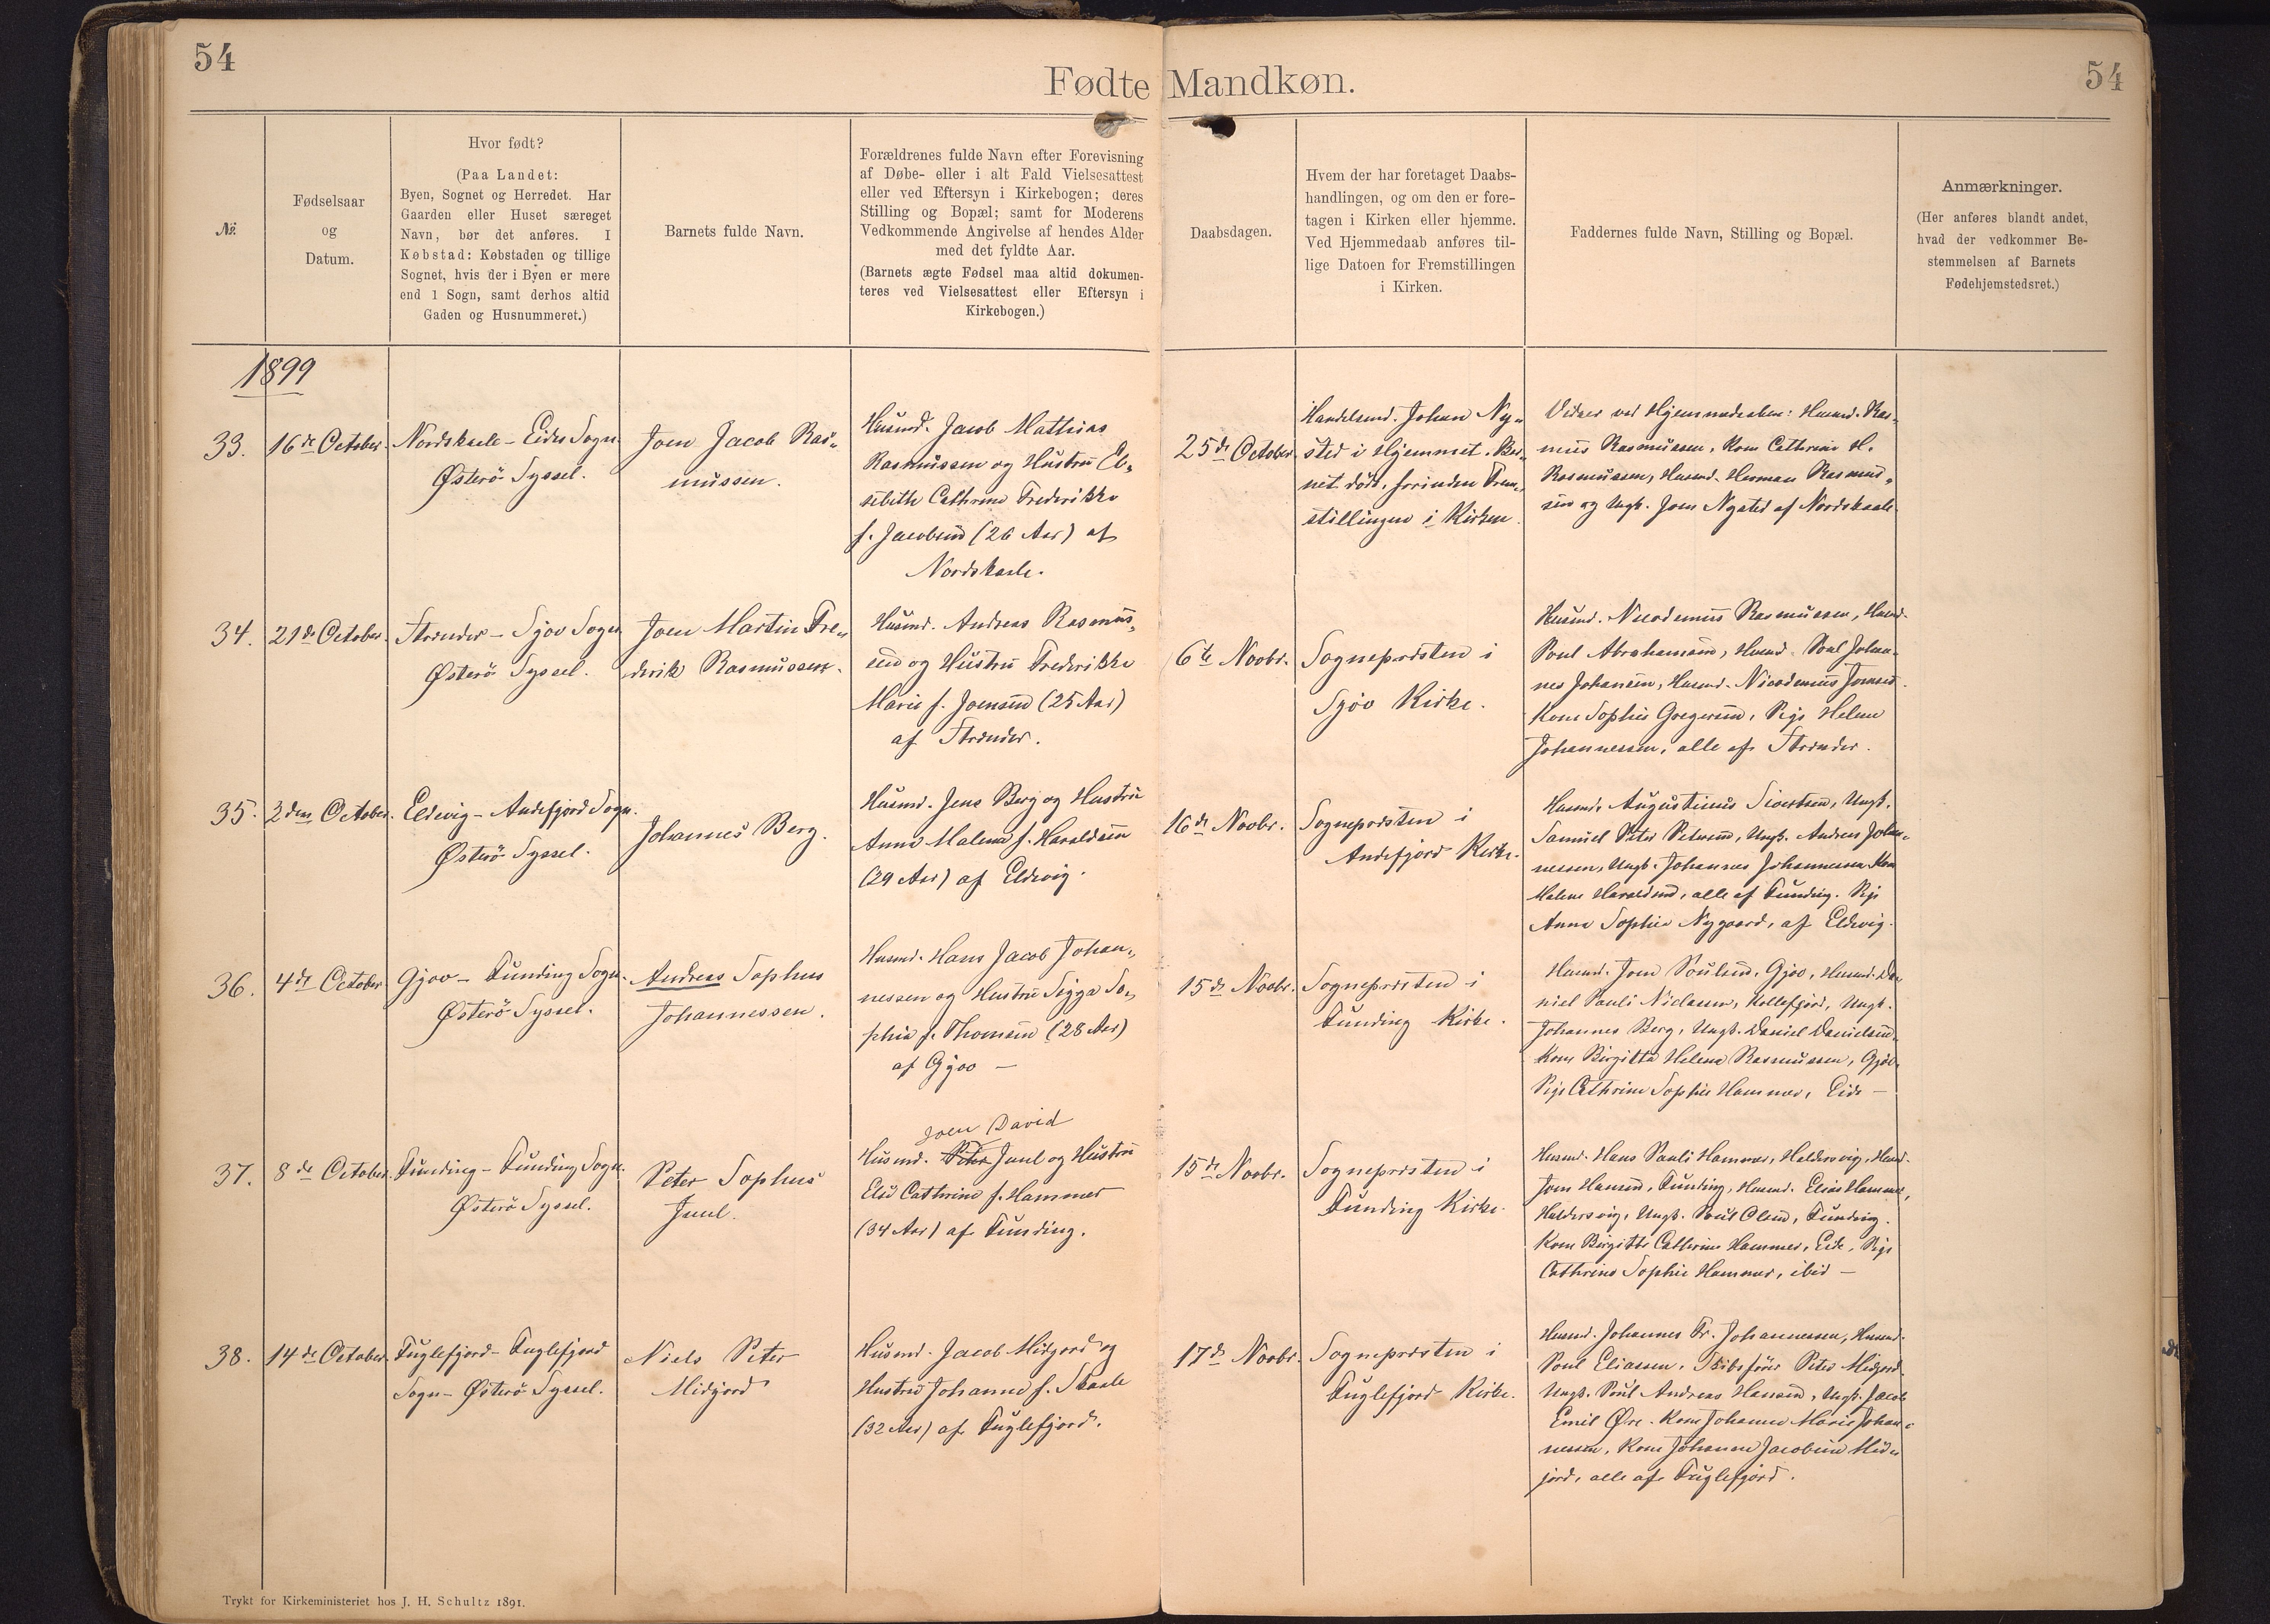 54
54
Fødte Mandkøn.
№
Fødselsaar
og
Datum.
Hvor født?
(Paa Landet:
Byen, Sognet og Herredet. Har
Gaarden eller Huset særeget
Navn, bør det anføres. I
Købstad: Købstaden og tillige
Sognet, hvis der i Byen er mere
end 1 Sogn, samt derhos altid
Gaden og Husnummeret.)
Barnets fulde Navn.
Forældrenes fulde Navn efter Forevisning
af Døbe- eller i alt Fald Vielsesattest
eller ved Eftersyn i Kirkebogen; deres
Stilling og Bopæl; samt for Moderens
Vedkommende Angivelse af hendes Alder
med det fyldte Aar.
(Barnets ægte Fødsel maa altid dokumen-
teres ved Vielsesattest eller Eftersyn i
Kirkebogen.)
Daabsdagen.
Hvem der har foretaget Daabs-
handlingen, og om den er fore-
tagen i Kirken eller hjemme.
Ved Hjemmedaab anføres til-
lige Datoen for Fremstillingen
i Kirken.
Faddernes fulde Navn, Stilling og Bopæl.
Anmærkninger.
(Her anføres blandt andet,
hvad der vedkommer Be-
stemmelsen af Barnets
Fødehjemstedsret.)
1899
33.
16de October.
Nordskaale - Eides Sogn
Østerö Syssel.
Joen Jacob Ras-
mussen.
Husmd. Jacob Mathias
Rasmussen og Hustru El-
sebeth Cathrine Frederikke
f. Jacobsen (26 Aar) af
Nordskaale.
25de October
Handelsmd. Johan Ny-
sted i Hjemmet. Bar-
net døde, forinden Frem-
stillingen i Kirken.
Vidner ved Hjemmedaaben: Husmd. Ras-
mus Rasmussen, Kone Cathrine H.
Rasmussen, Husmd. Herman Rasmus-
sen og Ungk. Joen Nysted af Nordskaale
34.
21de October.
Strender - Sjov Sogn
Østerö Syssel.
Joen Martin Fre-
derik Rasmussen.
Husmd. Andreas Rasmus-
sen og Hustru Frederikke
Marie f. Joensen (25 Aar)
af Strender.
6te Novbr.
Sognepræsten i
Sjov Kirke.
Husmd. Nicodemus Rasmussen, Husmd.
Poul Abrahamsen, Husmd. Poul Johan-
nes Johansen, Husmd. Nicodemus Joensen.
Kone Sophie Gregersen, Pige Helene
Johannessen, alle af Strender.
35.
2den October.
Eldevig - Andefjord Sogn.
Østerö Syssel.
Johannes Berg.
Husmd. Jens Berg og Hustru
Anna Malene f. Haraldsen
(29 Aar) af Eldevig.
16de Novbr.
Sognepræsten i
Andefjord Kirke.
Husmd. Augustinus Sivertsen, Ungk.
Samuel Peter Petersen, Ungk. Andreas Johan-
nessen, Ungk. Johannes Johannessen Kone
Malene Haraldsen, alle af Funding. Pige
Anna Sophie Nygaard, af Eldevig.
36.
4de October
Gjov - Funding Sogn.
Østerö Syssel.
Andreas Sophus
Johannessen.
Husmd. Hans Jacob Johan-
nessen og Hustru Sigga So-
phie f. Thomsen (28 Aar)
af Gjov -
15de Novbr.
Sognepræsten i
Funding Kirke.
Husmd. Joen Poulsen, Gjov, Husmd. Da-
niel Pauli Niclasen, Kollefjord, Ungk.
Johannes Berg, Ungk. Daniel Danielsen,
Kone Birgitta Helene Rasmussen, Gjov,
Pige Cathrine Sophie Hammer, Eide -
37.
8de October.
Funding - Funding Sogn.
Østerö Syssel.
Peter Sophus
Juul.
Joen David
Husmd. Peter Juul og Hustru
Else Cathrine f. Hammer
(34 Aar) af Funding.
15de Novbr.
Sognepræsten i
Funding Kirke.
Husmd. Hans Pauli Hammer, Haldersvig, Husmd.
Joen Hansen, Funding, Husmd. Elias Hammer,
Haldersvig, Ungk. Poul Olsen, Funding.
Kone Birgitte Cathrine Hammer, Eide, Pige
Cathrine Sophie Hammer, ibid -
38.
14de October.
Fuglefjord - Fuglefjord
Sogn - Østerö Syssel.
Niels Peter
Midjord
Husmd. Jacob Midjord og
Hustru Johanne f. Skaale
(32 Aar) af Fuglefjord.
17de Novbr.
Sognepræsten i
Fuglefjord Kirke.
Husmd. Johannes Fr. Johannessen, Husmd.
Poul Eliassen, Skibsfører Peter Midjord.
Ungk. Poul Andreas Hansen, Ungk. Jacob
Emil Øre. Kone Johanne Marie Johan-
nessen, Kone Johanne Jacobine Mid-
jord, alle af Fuglefjord.
Trykt for Kirkeministeriet hos J. H. Schultz 1891.